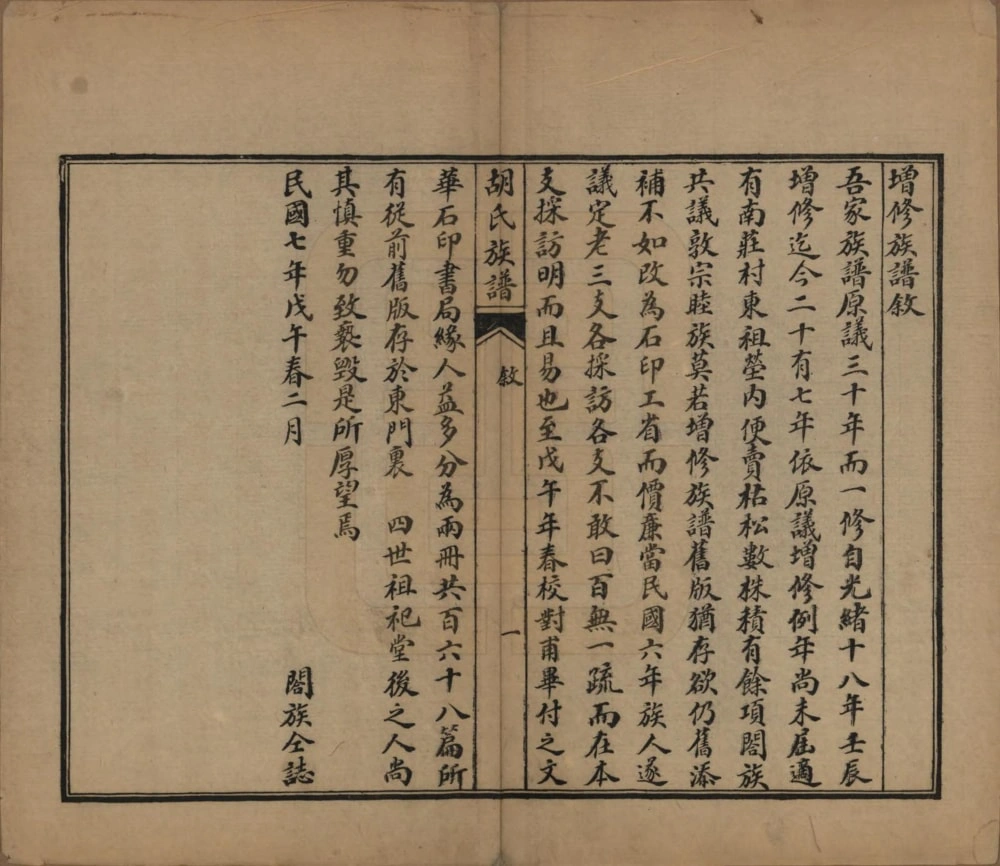 增修族譜敘
吾家族譜原議三十年而一修自光緒十八年壬辰
增修迄今二十有七年依原議增修例年尚未屆適
有南莊村東祖塋內便賣枯松數株積有餘項閤族
共議敦宗睦族莫若增修族譜舊版猶存欲仍舊添
補不如改為石印工省而價廉當民國六年族人遂
議定老三支各採訪各支不敢曰百無一疏而在本
支採訪明而且易也至戊午年春校對甫畢付之文
胡氏族譜 敘 一
華石印書局緣人益多分為兩冊共百六十八篇所
有從前舊版存於東門裏 四世祖祀堂後之人尚
其慎重勿致褻毀是所厚望焉
民國七年戊午春二月 閤族仝誌